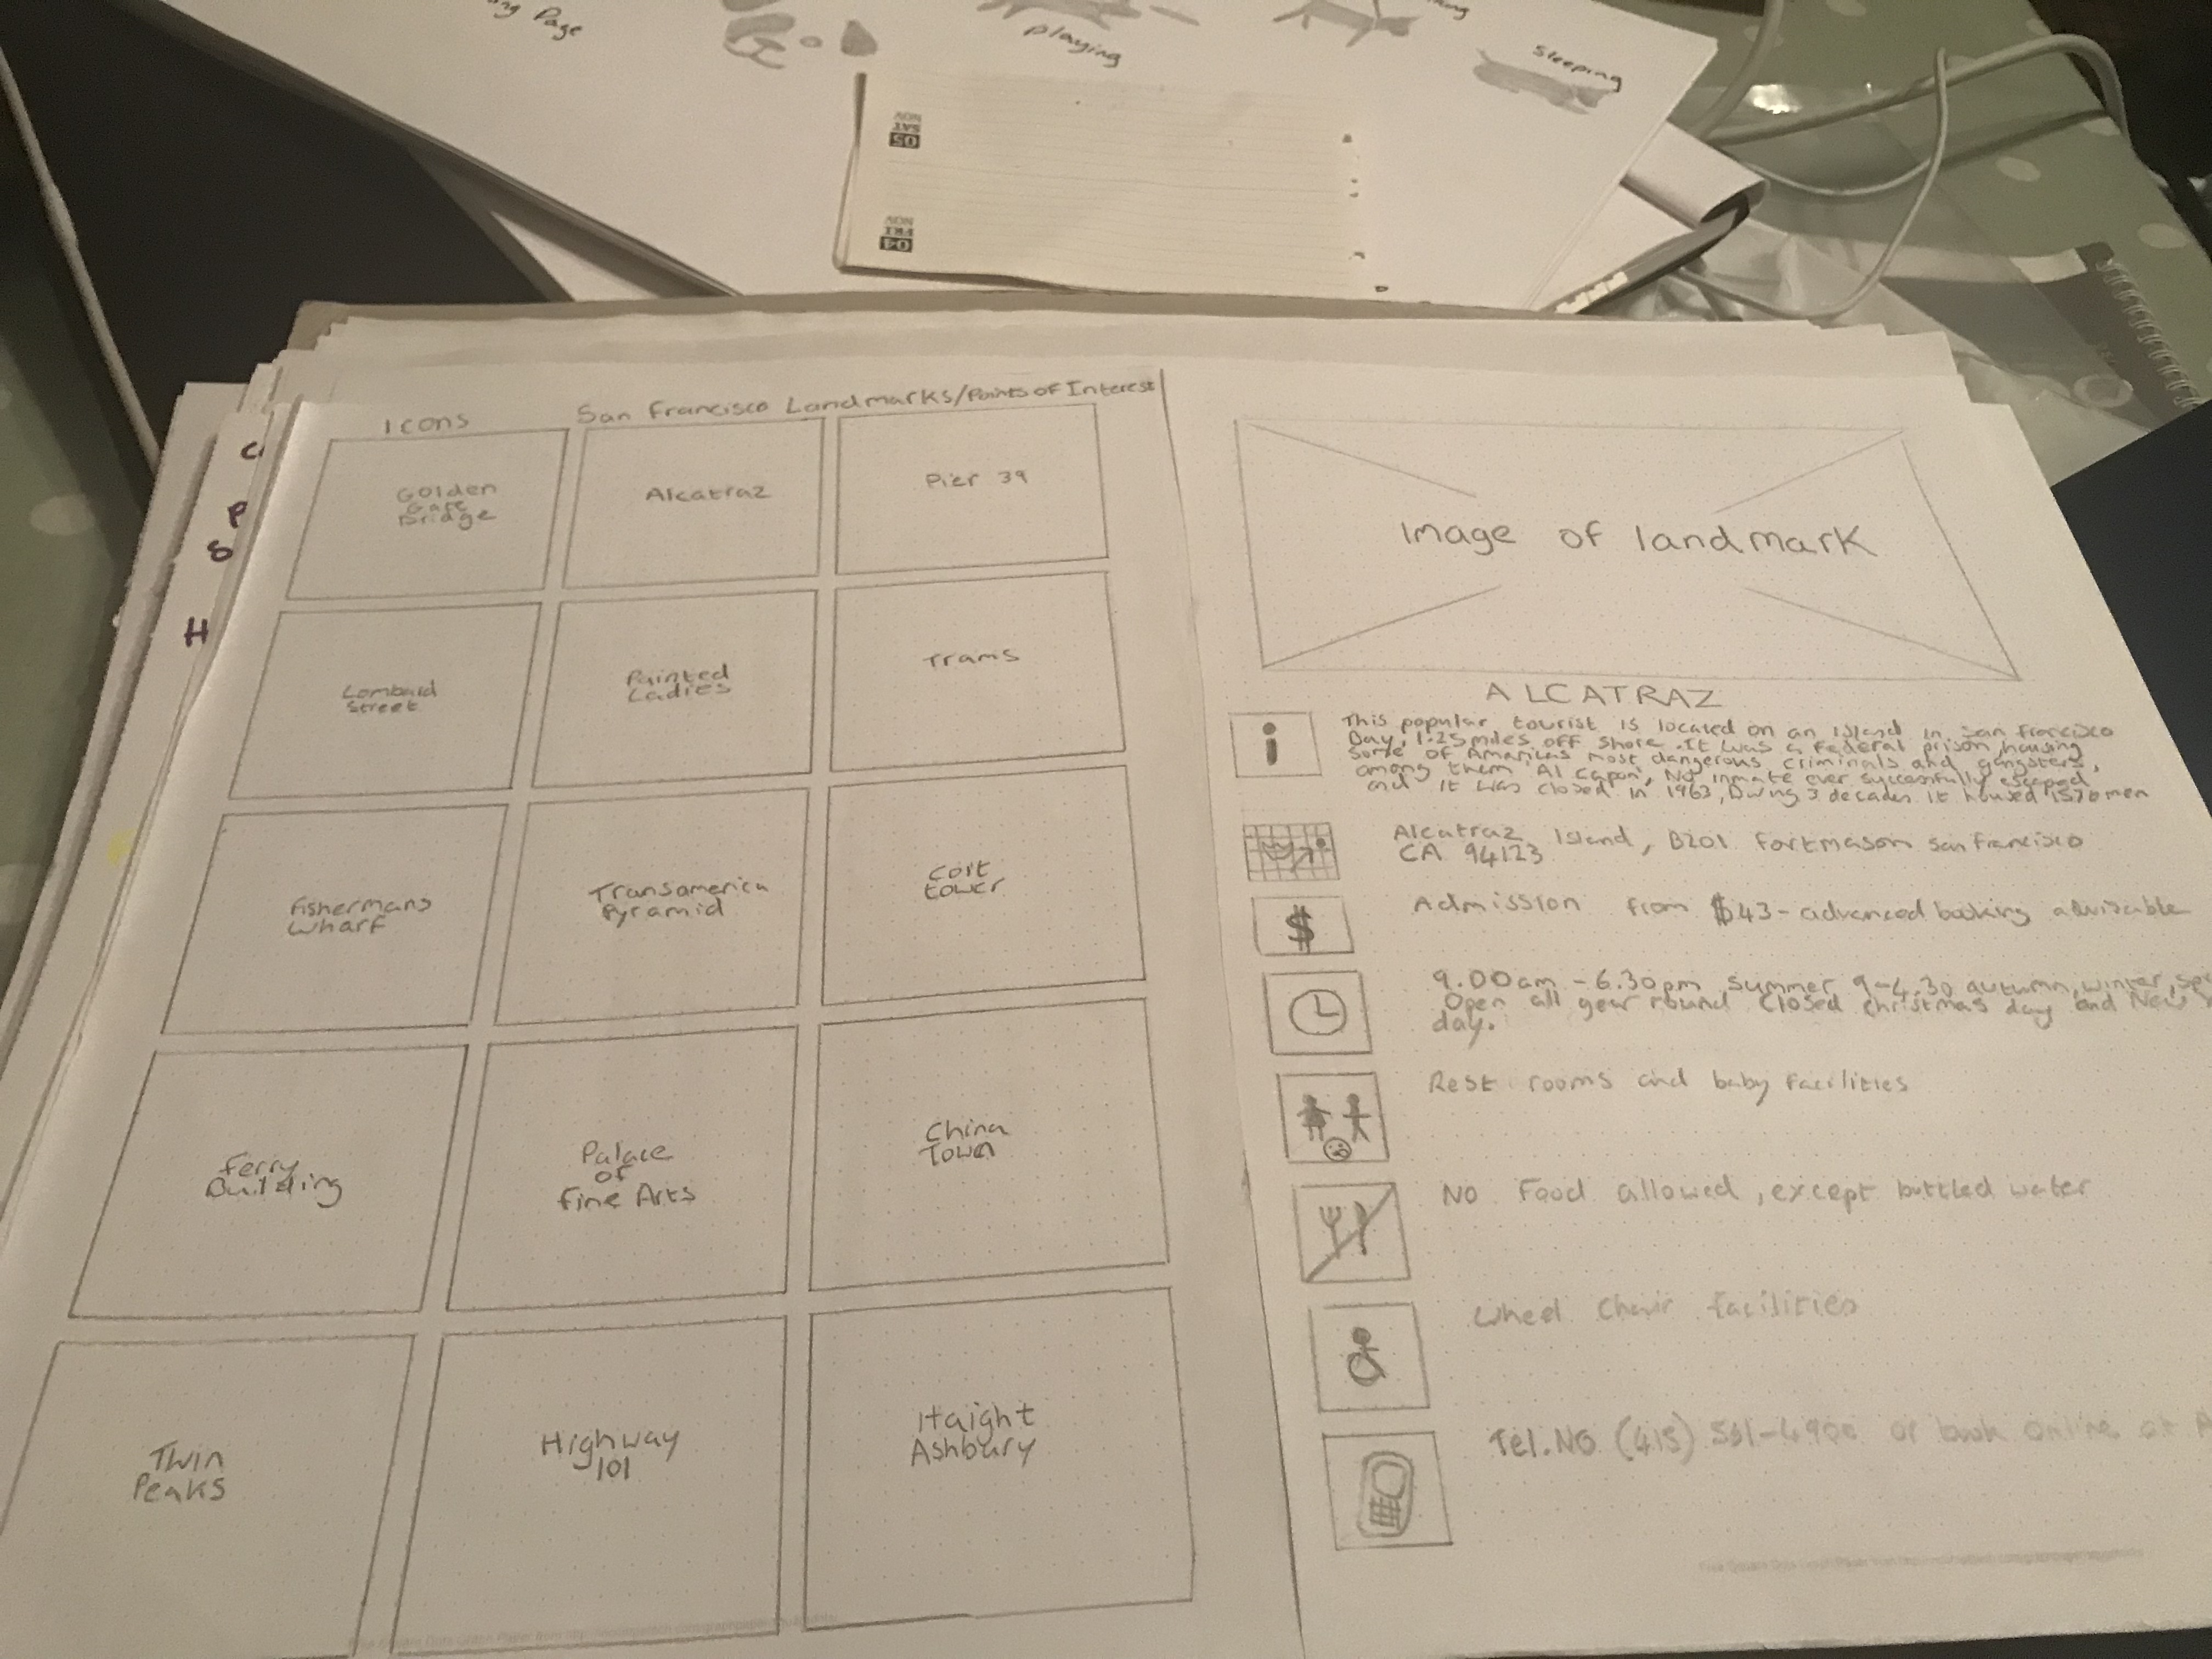 ng Page
playing
sleeping
05
SAT
NOV
04
FRI
NOV
C
P
S
H
Icons
San Francisco Landmarks/Points of Interest
Golden
Gate
Bridge
Alcatraz
Pier 39
Lombard
Street
Painted
Ladies
Trams
Fishermans
Wharf
Transamerica
Pyramid
Coit
tower
Ferry
Building
Palace
of
Fine Arts
China
Town
Twin
Peaks
Highway
101
Haight
Ashbury
Image of landmark
ALCATRAZ
i
This popular tourist is located on an island in San Francisco
Bay, 1.25 miles off shore. It was a Federal prison housing
some of Americas most dangerous criminals and gangsters,
among them Al Capone, No inmate ever successfully escaped
and it was closed in 1963, During 3 decades it housed 1576 men
Alcatraz Island, B201 Fortmason San Francisco
CA 94123
$
Admission from $43 - advanced booking advisable
9.00am - 6.30pm summer 9-4.30 autumn, winter,
Open all year round Closed christmas day and New
day.
Rest rooms and baby facilities
No Food allowed, except bottled water
Wheel Chair facilities
Tel.NO (415) 561-4900 or book online at